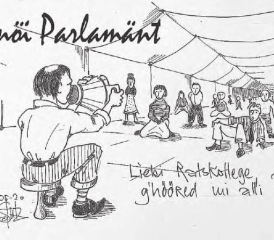 nöi Parlamänt
Liebi Ratskollege
g'hööred mi alli